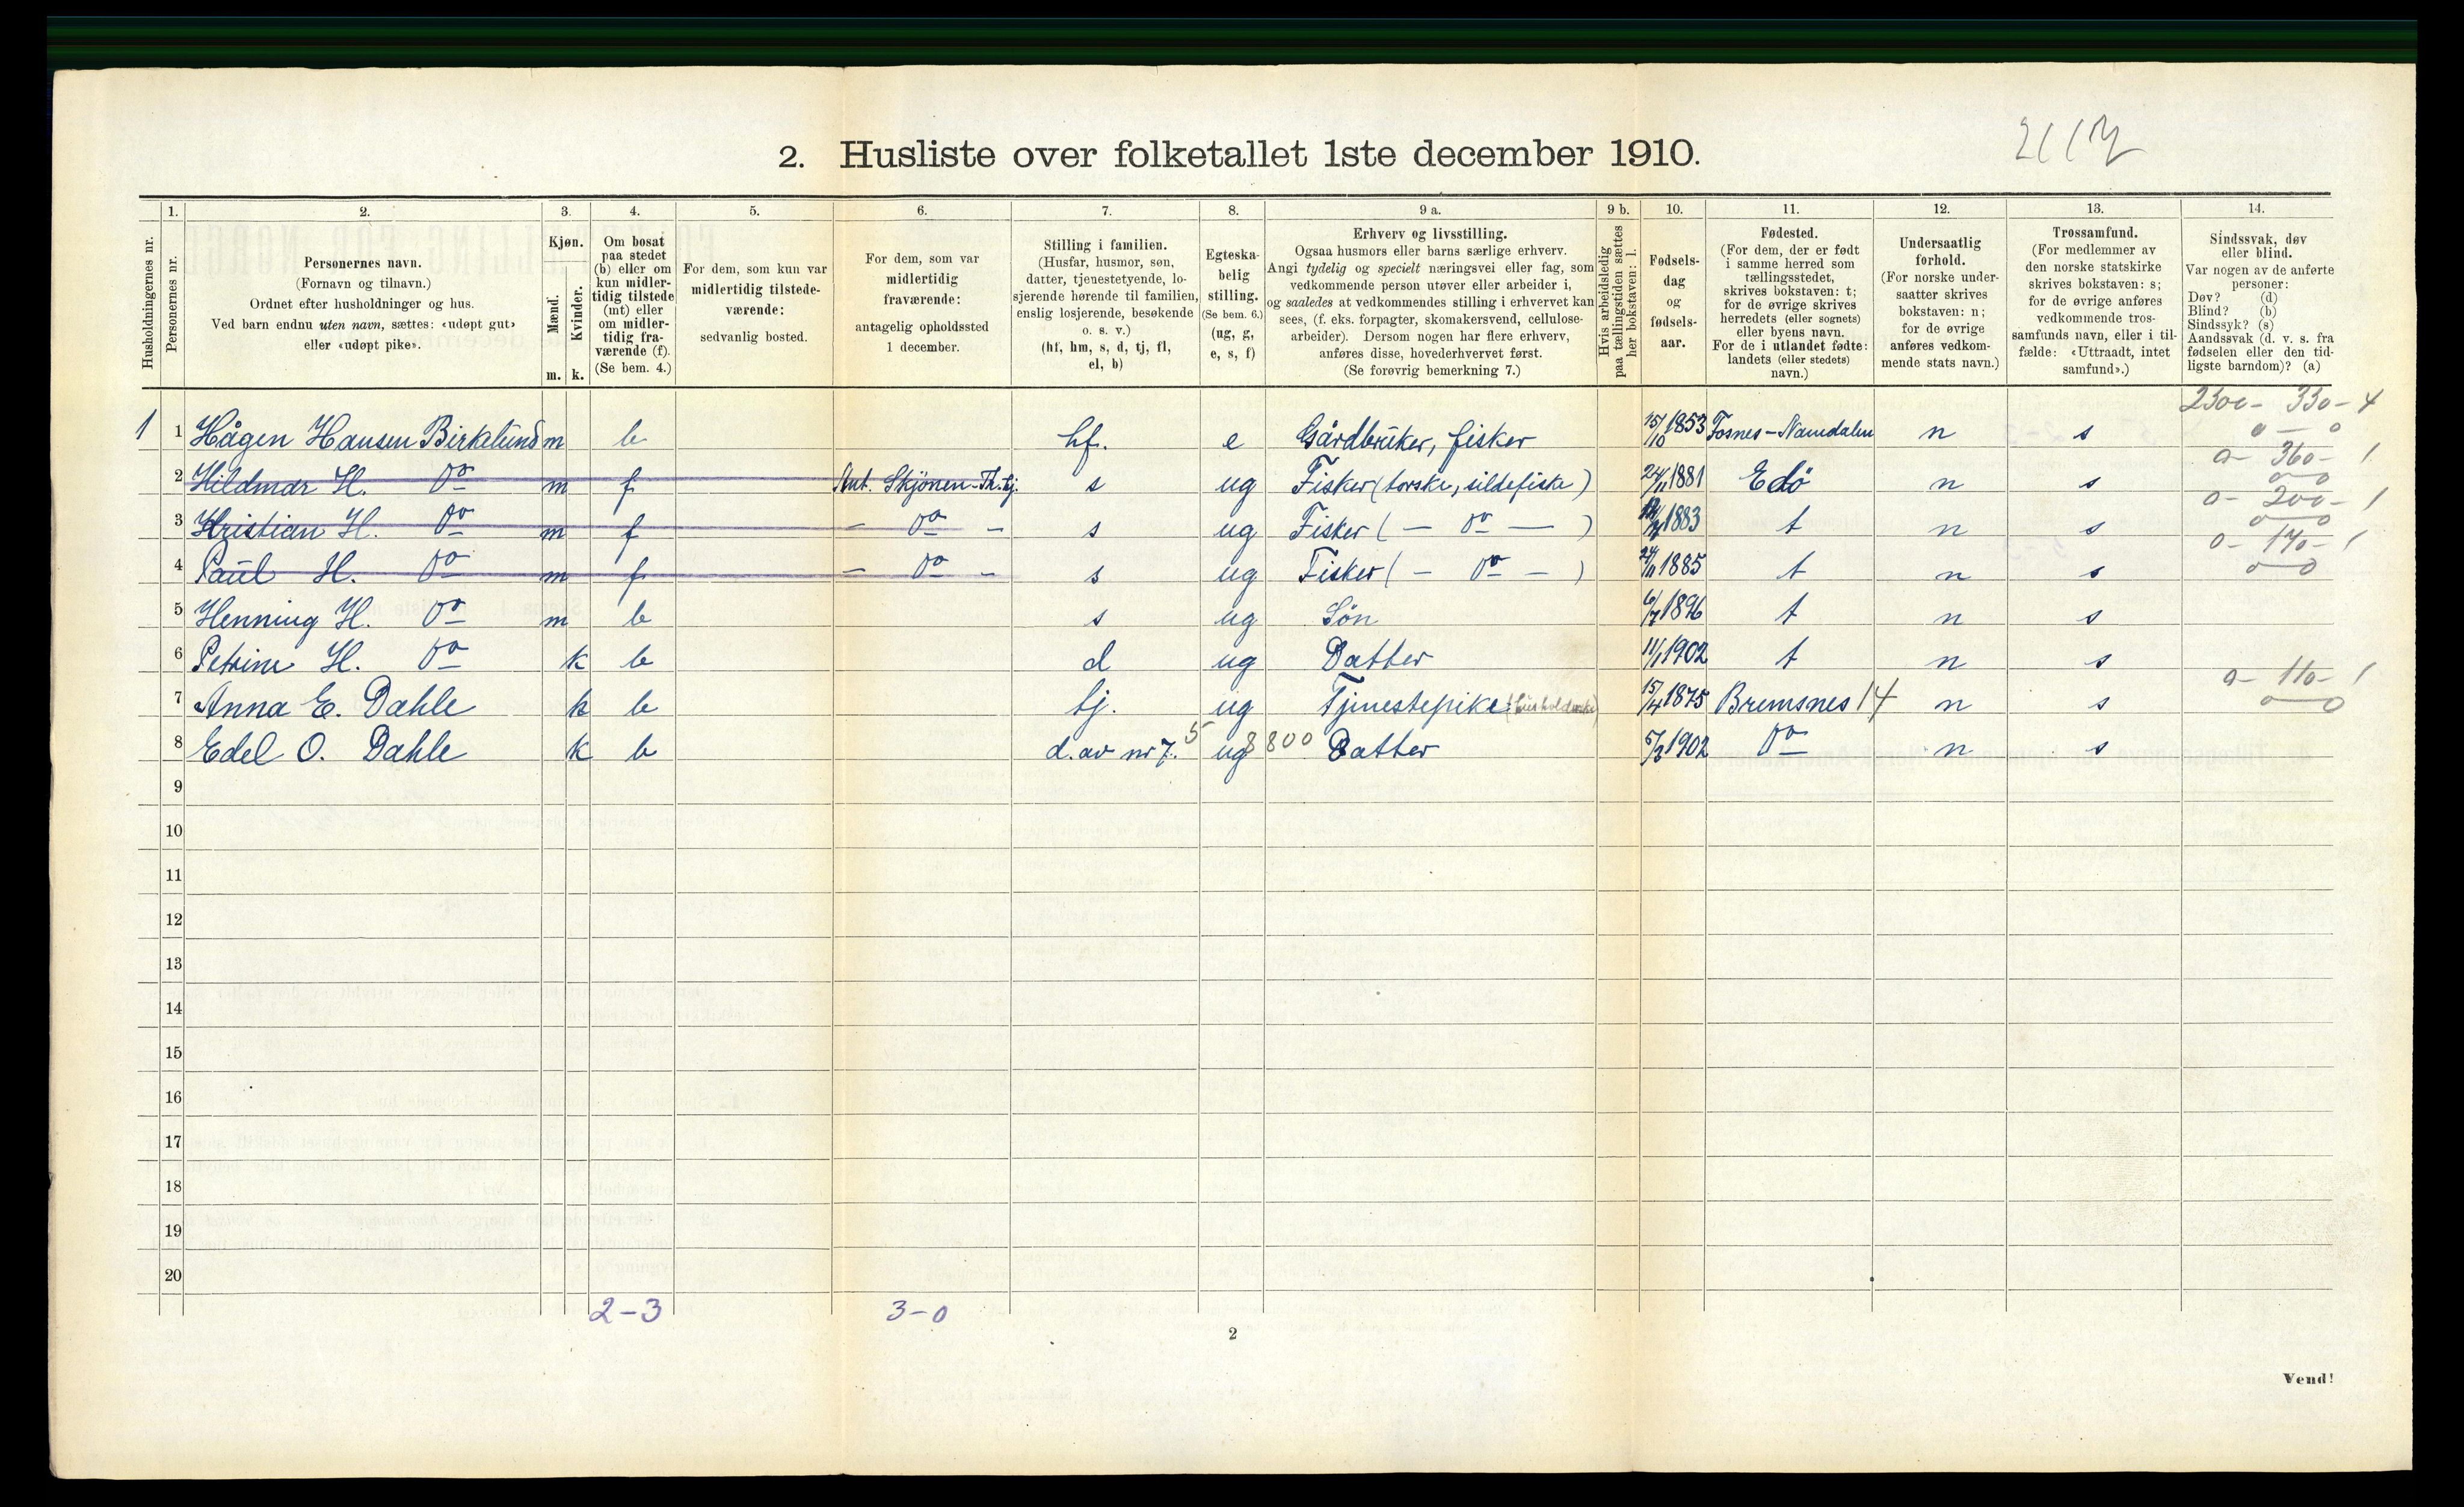 2117
2. Husliste over folketallet 1ste december 1910.
1. 2. 3. 4. 5. 6. 7. 8. 9 a. 9 b. 10. 11. 12. 13. 14.
Husholdningernes nr.
Personernes nr.
Personernes navn.
(Fornavn og tilnavn.)
Ordnet efter husholdninger og hus.
Ved barn endnu uten navn, sættes: «udøpt gut»
eller «udøpt pike».
Kjøn.
Mænd.
Kvinder.
m. k.
Om bosat
paa stedet
(b) eller om
kun midler-
tidig tilstede
(mt) eller
om midler-
tidig fra-
værende (f).
(Se bem. 4.)
For dem, som kun var
midlertidig tilstede-
værende:
sedvanlig bosted.
For dem, som var
midlertidig
fraværende:
antagelig opholdssted
1 december.
Stilling i familien.
(Husfar, husmor, søn,
datter, tjenestetyende, lo-
sjerende hørende til familien,
enslig losjerende, besøkende
o. s. v.)
(hf, hm, s, d, tj, fl,
el, b)
Egteska-
belig
stilling.
(Se bem. 6.)
(ug, g,
e, s, f)
Erhverv og livsstilling.
Ogsaa husmors eller barns særlige erhverv.
Angi tydelig og specielt næringsvei eller fag, som
vedkommende person utøver eller arbeider i,
og saaledes at vedkommendes stilling i erhvervet kan
sees, (f. eks. forpagter, skomakersvend, cellulose-
arbeider). Dersom nogen har flere erhverv,
anføres disse, hovederhvervet først.
(Se forøvrig bemerkning 7.)
Hvis arbeidsledig
paa tællingstiden sættes
her bokstaven: l.
Fødsels-
dag
og
fødsels-
aar.
Fødested.
(For dem, der er født
i samme herred som
tællingsstedet,
skrives bokstaven: t;
for de øvrige skrives
herredets (eller sognets)
eller byens navn.
For de i utlandet fødte:
landets (eller stedets)
navn.)
Undersaatlig
forhold.
(For norske under-
saatter skrives
bokstaven: n;
for de øvrige
anføres vedkom-
mende stats navn.)
Trossamfund.
(For medlemmer av
den norske statskirke
skrives bokstaven: s;
for de øvrige anføres
vedkommende tros-
samfunds navn, eller i til-
fælde: «Uttraadt, intet
samfund».)
Sindssvak, døv
eller blind.
Var nogen av de anførte
personer:
Døv? (d)
Blind? (b)
Sindssyk? (s)
Aandssvak (d. v. s. fra
fødselen eller den tid-
ligste barndom)? (a)
2300 - 330 - 4
1 1 Hågen Hansen Birkelund m b hf. e Gårdbruker, fisker 15/10 1853 Fosnes - Namdalen n s 0 — 0
0 - 360 - 1
2 Hildmar H. Do m f Ant. Skjønen - Th.tj. s ug Fisker (torske, sildefiske) 24/11 1881 Edö n s 0 — 0
0 - 200 - 1
3 Kristian H. Do m f — Do — s ug Fisker ( — Do — ) 1883 t n s 0 — 0
0 - 170 - 1
4 Paul H. Do m f — Do — s ug Fisker ( — Do — ) 24/11 1885 t n s 0 — 0
5 Henning H. Do m b s ug Sön 6/7 1896 t n s
6 Petrine H. Do k b d ug Datter 11/1 1902 t n s
0 - 110 - 1
7 Anna E. Dahle k b tj. ug Tjenestepike (husholderske) 15/4 1875 Bremsnes 14 n s 0 — 0
8 Edel O. Dahle k b d. av nr 7. 5 ug 8800 Datter 5/2 1902 Do n s
9
10
11
12
13
14
15
16
17
18
19
20
2-3 3-0
2
Vend!